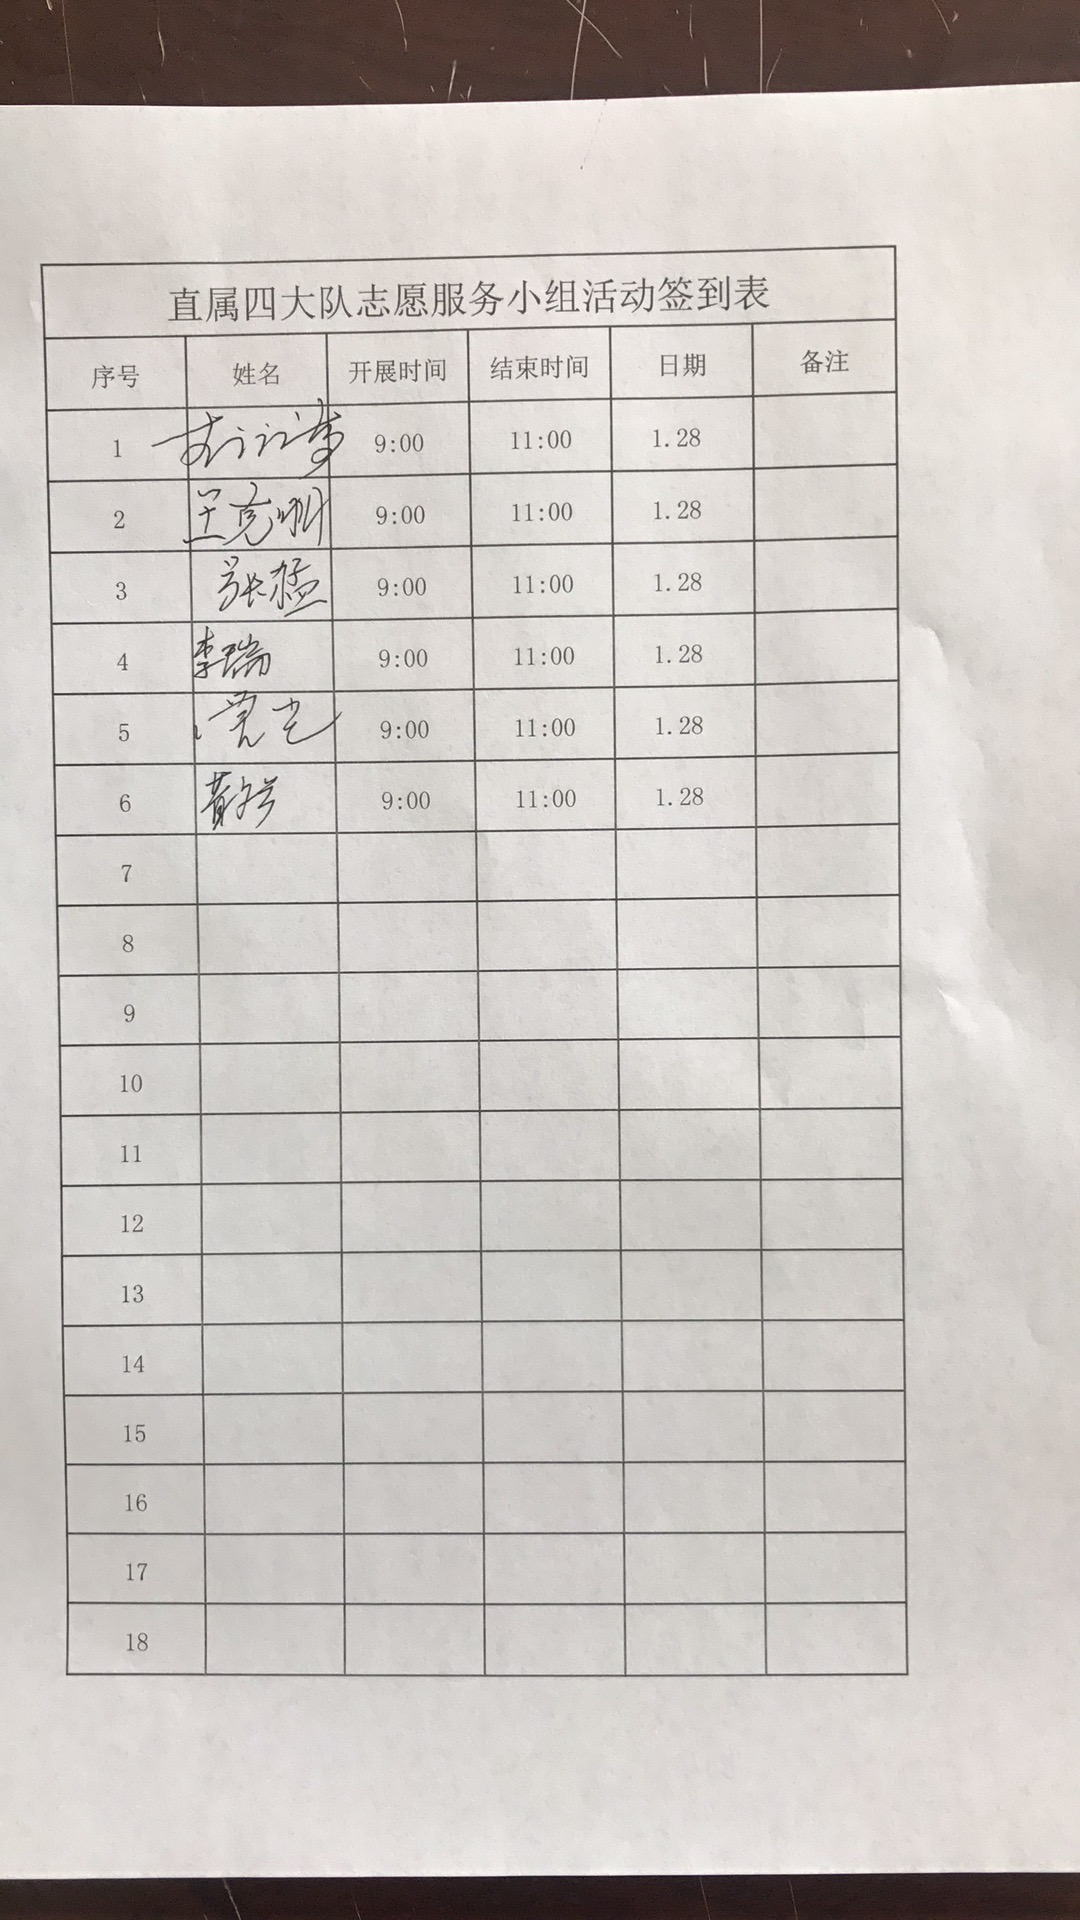 直属四大队志愿服务小组活动签到表
序号 姓名 开展时间 结束时间 日期 备注
1 9:00 11:00 1.28
2 9:00 11:00 1.28
3 张猛 9:00 11:00 1.28
4 李瑞 9:00 11:00 1.28
5 9:00 11:00 1.28
6 9:00 11:00 1.28
7
8
9
10
11
12
13
14
15
16
17
18